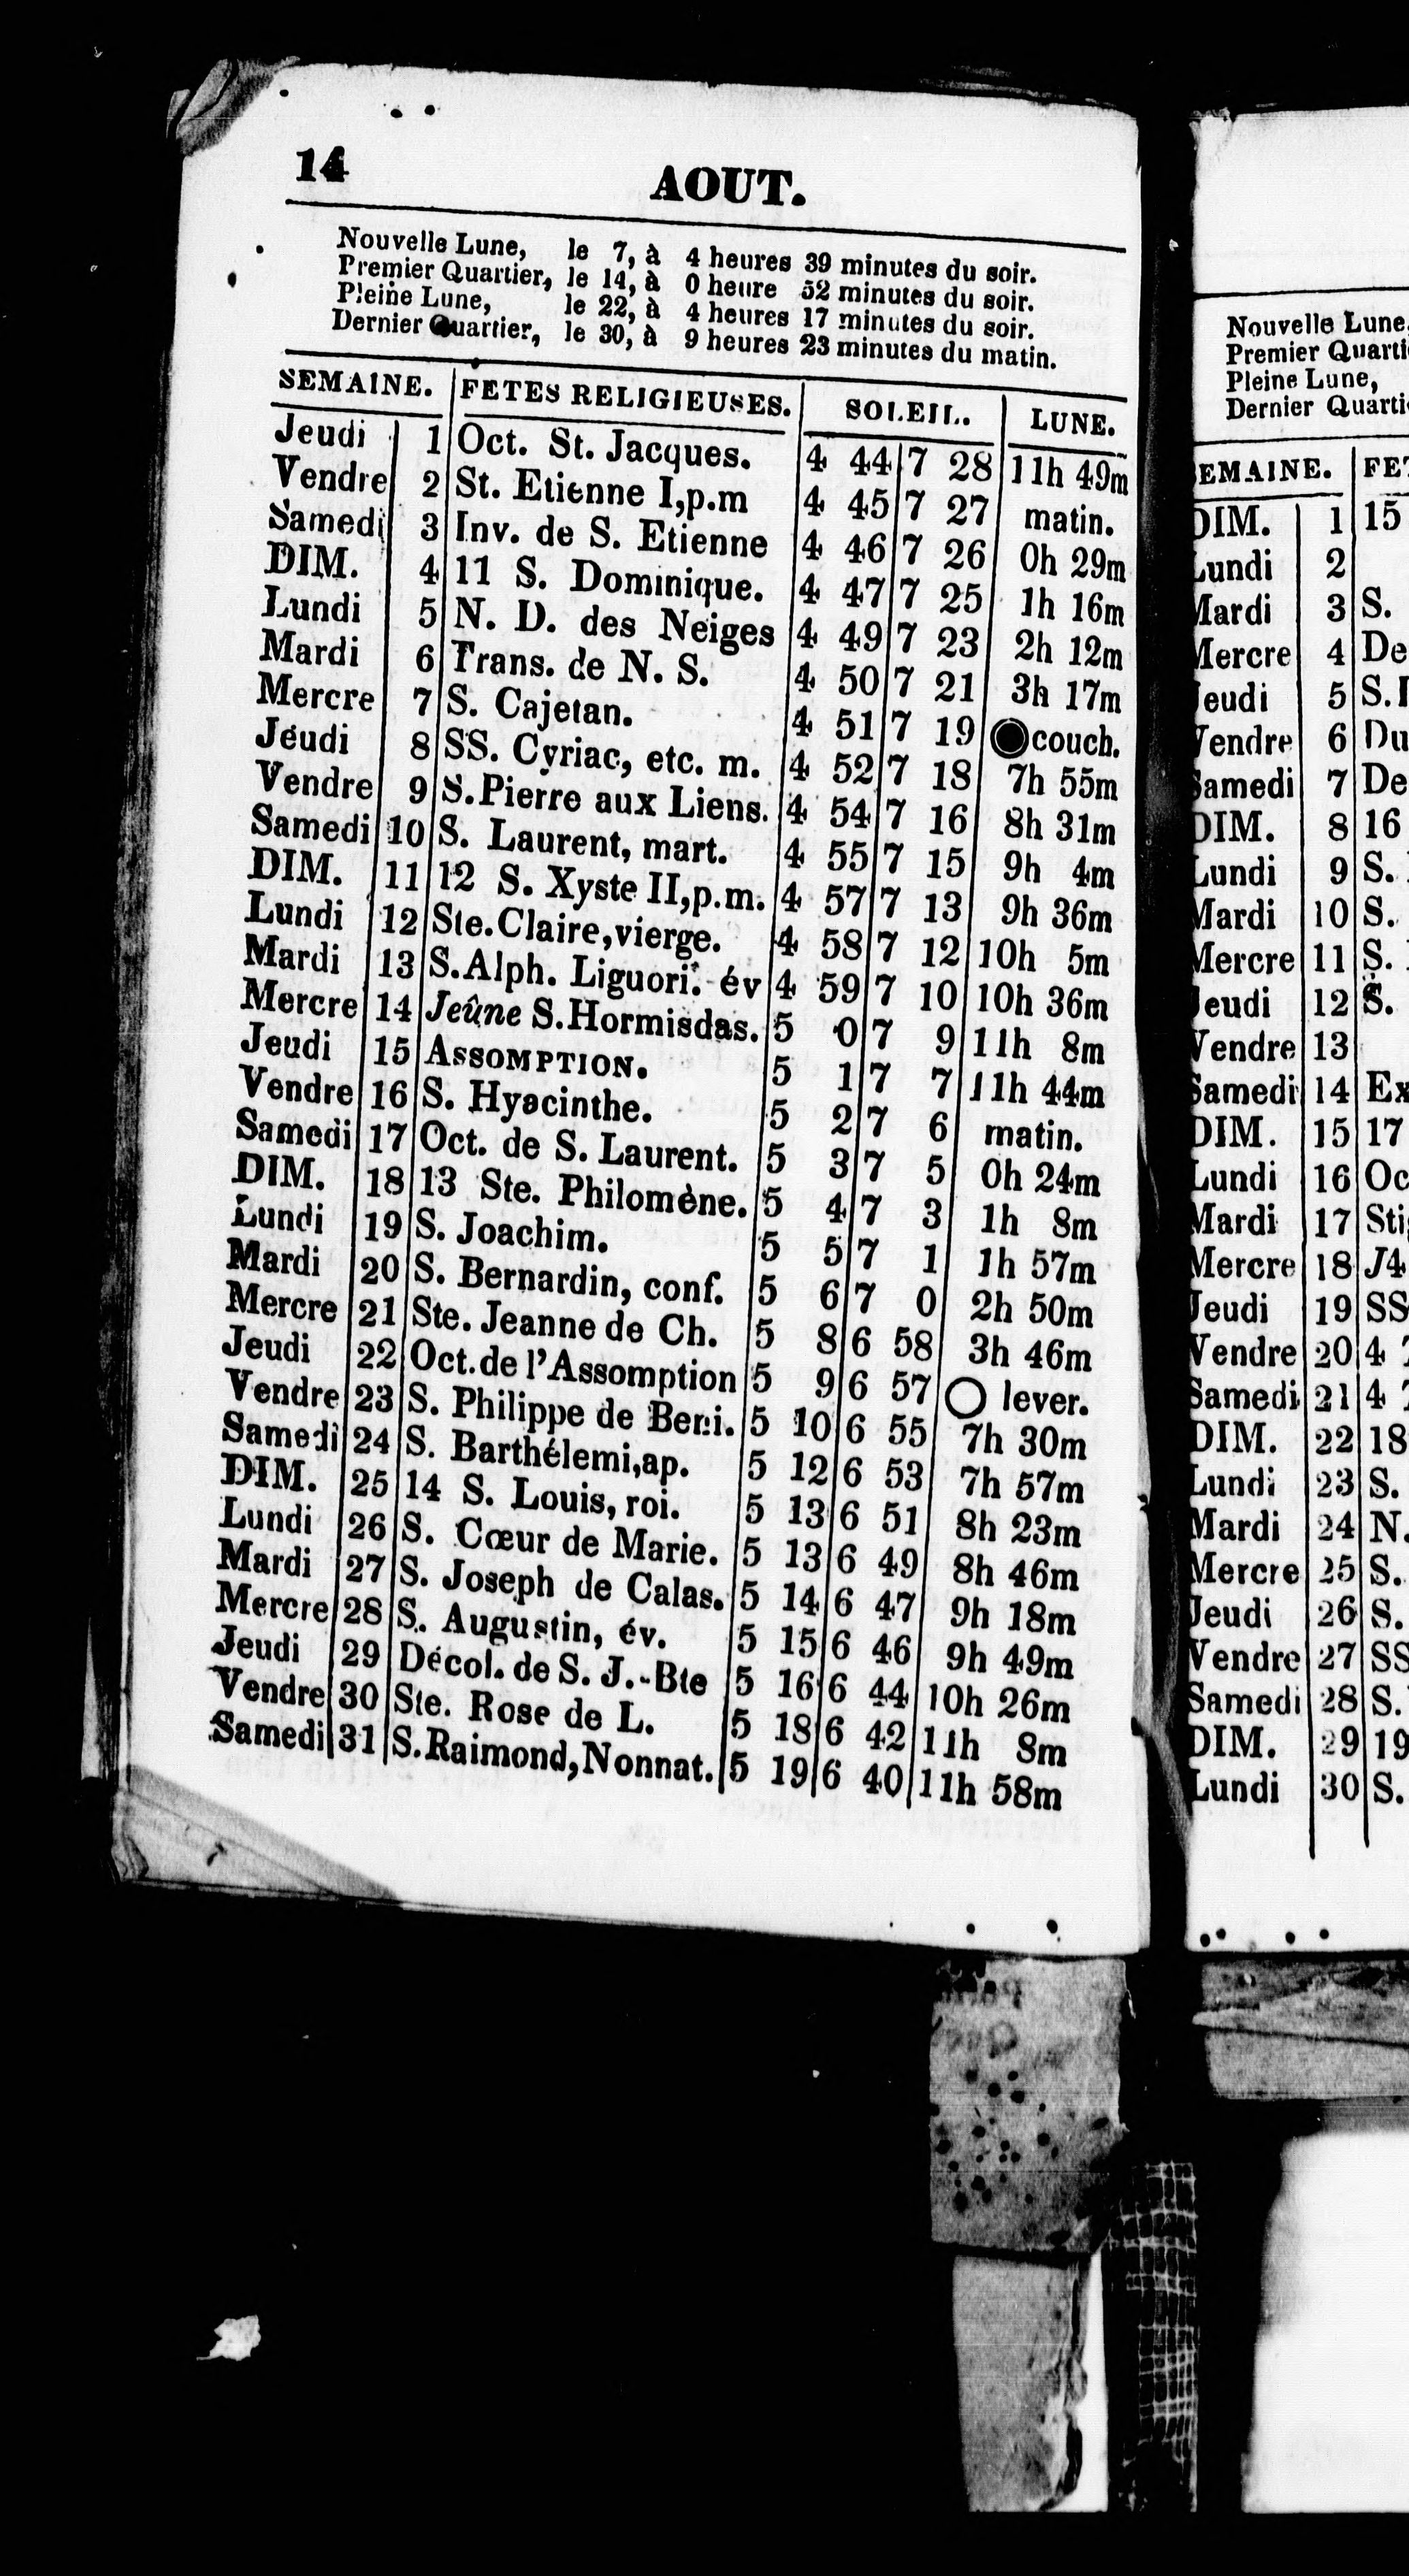 14
AOUT.
Nouvelle Lune, le 7, à 4 heures 39 minutes du soir.
Premier Quartier, le 14, à 0 heure 52 minutes du soir.
Pleine Lune, le 22, à 4 heures 17 minutes du soir.
Dernier Quartier, le 30, à 9 heures 23 minutes du matin.
SEMAINE. FETES RELIGIEUSES. SOLEIL. LUNE.
Jeudi 1 Oct. St. Jacques. 4 44 7 28 11h 49m
Vendre 2 St. Etienne I,p.m 4 45 7 27 matin.
Samedi 3 Inv. de S. Etienne 4 46 7 26 0h 29m
DIM. 4 11 S. Dominique. 4 47 7 25 1h 16m
Lundi 5 N. D. des Neiges 4 49 7 23 2h 12m
Mardi 6 Trans. de N. S. 4 50 7 21 3h 17m
Mercre 7 S. Cajetan. 4 51 7 19 couch.
Jeudi 8 SS. Cyriac, etc. m. 4 52 7 18 7h 55m
Vendre 9 S.Pierre aux Liens. 4 54 7 16 8h 31m
Samedi 10 S. Laurent, mart. 4 55 7 15 9h 4m
DIM. 11 12 S. Xyste II,p.m. 4 57 7 13 9h 36m
Lundi 12 Ste.Claire,vierge. 4 58 7 12 10h 5m
Mardi 13 S.Alph. Liguori. év 4 59 7 10 10h 36m
Mercre 14 Jeûne S.Hormisdas. 5 0 7 9 11h 8m
Jeudi 15 ASSOMPTION. 5 1 7 7 11h 44m
Vendre 16 S. Hyacinthe. 5 2 7 6 matin.
Samedi 17 Oct. de S. Laurent. 5 3 7 5 0h 24m
DIM. 18 13 Ste. Philomène. 5 4 7 3 1h 8m
Lundi 19 S. Joachim. 5 5 7 1 1h 57m
Mardi 20 S. Bernardin, conf. 5 6 7 0 2h 50m
Mercre 21 Ste. Jeanne de Ch. 5 8 6 58 3h 46m
Jeudi 22 Oct.de l'Assomption 5 9 6 57 lever.
Vendre 23 S. Philippe de Beni. 5 10 6 55 7h 30m
Samedi 24 S. Barthélemi,ap. 5 12 6 53 7h 57m
DIM. 25 14 S. Louis, roi. 5 13 6 51 8h 23m
Lundi 26 S. Cœur de Marie. 5 13 6 49 8h 46m
Mardi 27 S. Joseph de Calas. 5 14 6 47 9h 18m
Mercre 28 S. Augustin, év. 5 15 6 46 9h 49m
Jeudi 29 Décol. de S. J.-Bte 5 16 6 44 10h 26m
Vendre 30 Ste. Rose de L. 5 18 6 42 11h 8m
Samedi 31 S.Raimond,Nonnat. 5 19 6 40 11h 58m
Nouvelle Lune,
Premier Quarti
Pleine Lune,
Dernier Quarti
EMAINE. FET
DIM. 1 15
Lundi 2
Mardi 3 S.
Mercre 4 De
Jeudi 5 S.
Vendre 6 Du
Samedi 7 De
DIM. 8 16
Lundi 9 S.
Mardi 10 S.
Mercre 11 S.
Jeudi 12 S.
Vendre 13
Samedi 14 Ex
DIM. 15 17
Lundi 16 Oc
Mardi 17 Sti
Mercre 18 J4
Jeudi 19 SS
Vendre 20 4
Samedi 21 4
DIM. 22 18
Lundi 23 S.
Mardi 24 N.
Mercre 25 S.
Jeudi 26 S.
Vendre 27 SS
Samedi 28 S.
DIM. 29 19
Lundi 30 S.